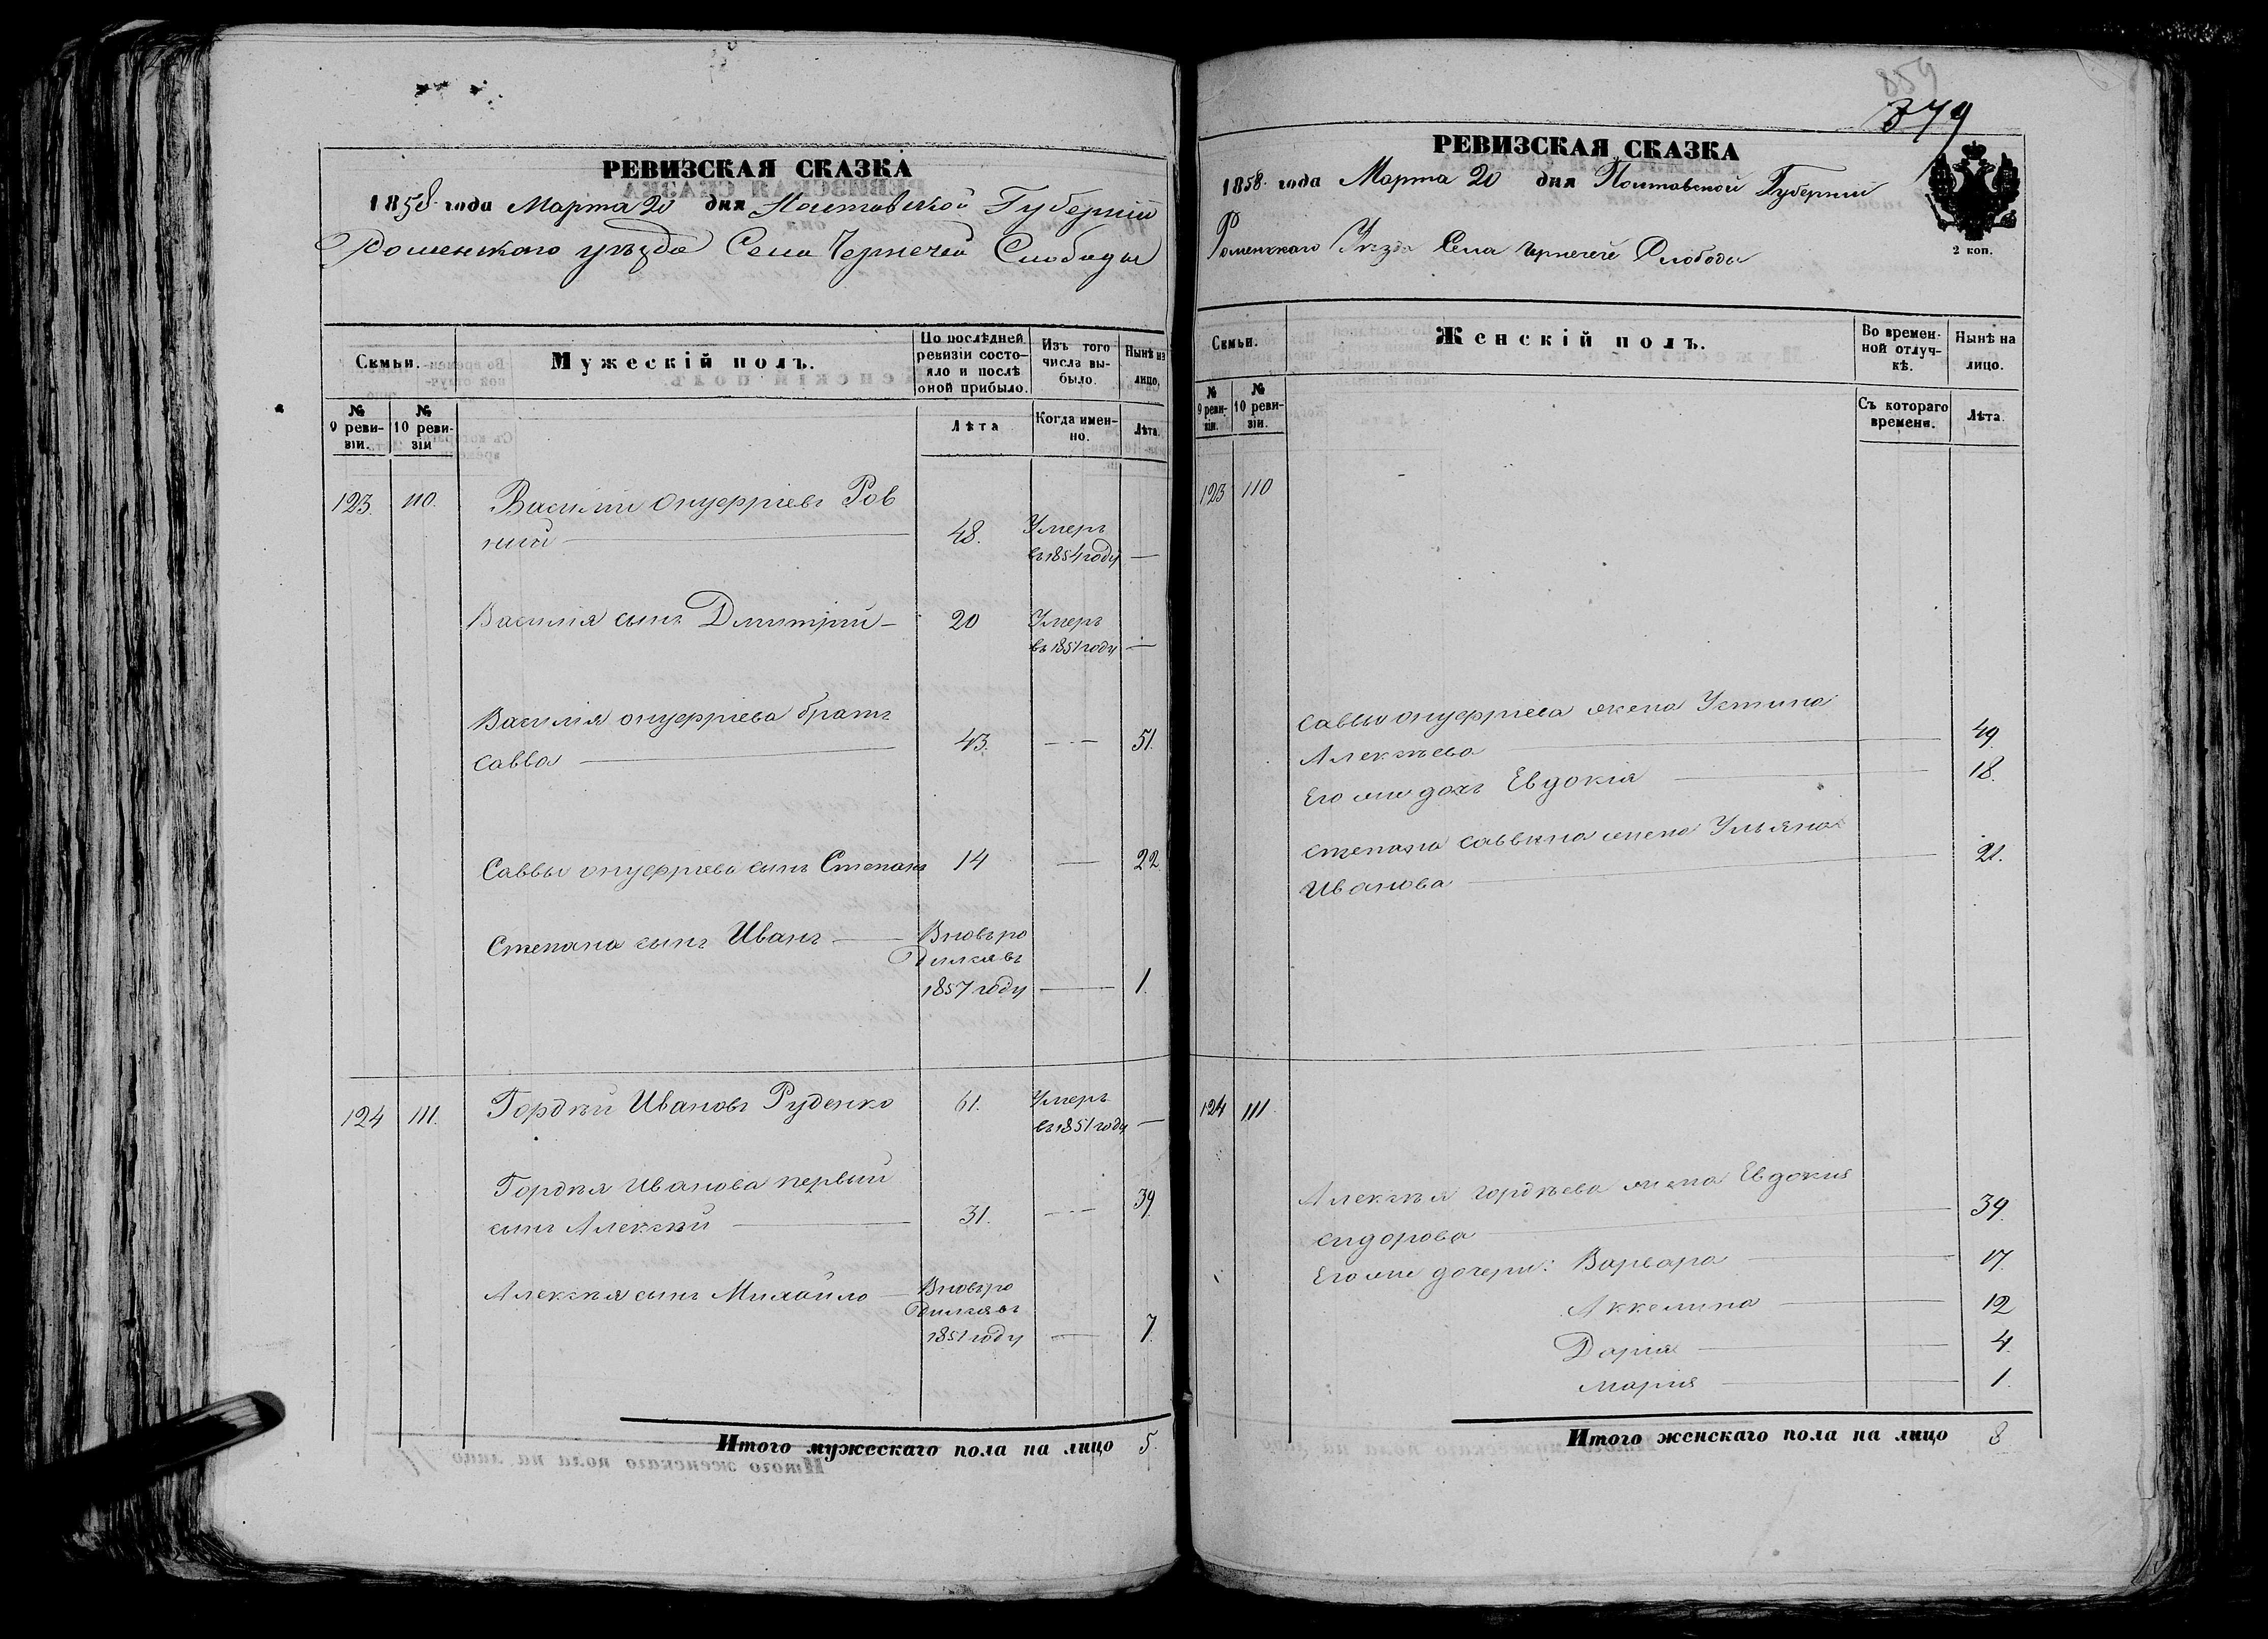 РЕВИЗСКАЯ СКАЗКА
1858 года Марта 20 дня Полтавской Губерніи
Роменского уѣзда Села Чернечей Слободы
Семьи.
Мужескій полъ.
По послѣдней ревизіи состояло и послѣ оной прибыло.
Изъ того числа выбыло.
Нынѣ на лицо.
№ 9 ревизіи.
№ 10 ревизіи
Лѣта
Когда именно.
Лѣта.
123. 110. Василій Онуфріевъ Ров
ный 48. Умеръ
въ 1854 году —
Василія сынъ Дмитрій — 20 Умеръ
въ 1851 году —
Василія Онуфріева братъ
Савва 43. — 51.
Саввы Онуфріева сынъ Степанъ 14 — 22
Степана сынъ Иванъ — Вновь ро
дился въ
1857 году — 1.
124 111. Гордѣй Ивановъ Руденко 61. Умеръ
въ 1851 году —
Гордѣя Иванова первый
сынъ Алексѣй 31. — 39
Алексѣя сынъ Михайло — Вновь ро
дился въ
1851 году — 7.
Итого мужескаго пола на лицо 5.
859
379
РЕВИЗСКАЯ СКАЗКА
1858 года Марта 20 дня Полтавской Губерніи
Роменского Уѣзда Села Чернечей Слободы
2 коп.
Семьи.
Женскій полъ.
Во временной отлучкѣ.
Нынѣ на лицо.
№ 9 ревизіи.
№ 10 ревизіи.
Съ котораго времени.
Лѣта.
123 110
Саввы Онуфріева жена Устина
Алексѣева 49.
Его же дочь Евдокія 18.
Степана Саввина жена Ульяна
Иванова 21.
124 111.
Алексѣя Гордѣева жена Евдокия
Сидорова 39.
Его же дочери: Варвара 17.
Аккелина 12
Дарія 4.
Марія 1.
Итого женскаго пола на лицо 8